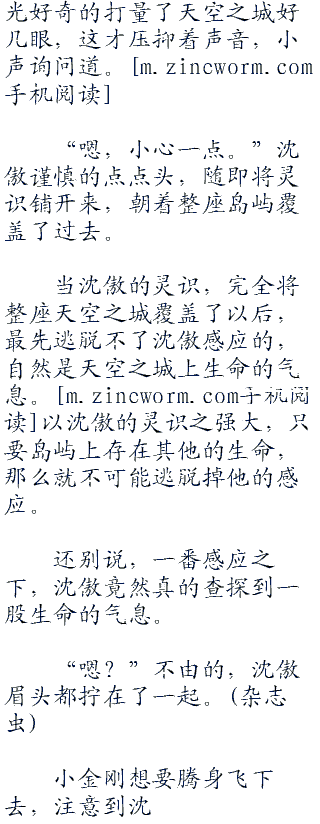 光好奇的打量了天空之城好
几眼，这才压抑着声音，小
声询问道。[m.zincworm.com
手机阅读]
“嗯，小心一点。”沈
傲谨慎的点点头，随即将灵
识铺开来，朝着整座岛屿覆
盖了过去。
当沈傲的灵识，完全将
整座天空之城覆盖了以后，
最先逃脱不了沈傲感应的，
自然是天空之城上生命的气
息。[m.zincworm.com手机阅
读]以沈傲的灵识之强大，只
要岛屿上存在其他的生命，
那么就不可能逃脱掉他的感
应。
还别说，一番感应之
下，沈傲竟然真的查探到一
股生命的气息。
“嗯？”不由的，沈傲
眉头都拧在了一起。(杂志
虫)
小金刚想要腾身飞下
去，注意到沈